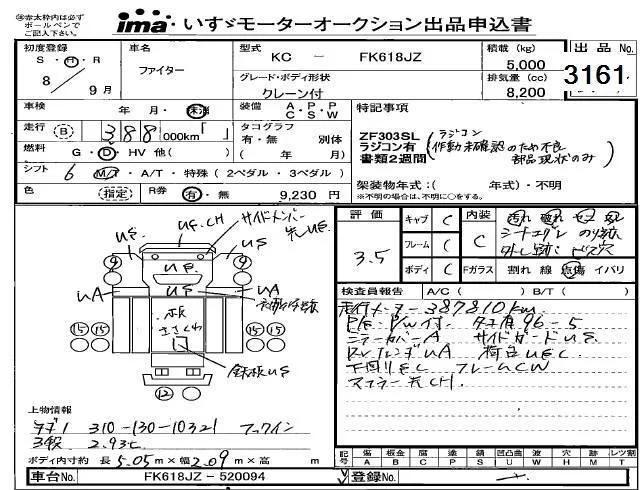 ㊟赤太枠内は必ず ボールペンで ご記入下さい。
ima いすゞモーターオークション出品申込書
初度登録 S・H・R 8年 9月
車名 ファイター
型式 KC - FK618JZ
グレード・ボディ形状 クレーン付
積載 (kg) 5,000
排気量 (cc) 8,200
出品 No. 3161
車検 年 月・抹消
装備 A・P・P C・S・W
特記事項
走行 (B) 388 000km「 」
タコグラフ 有・無 別体 ( 年 月)
ZF303SL
ラジコン有
書類2週間
ラジコン
作動未確認のため不良
部品現状のみ
燃料 G・D・HV 他( )
シフト 6 M/T・A/T・特殊(2ペダル・3ペダル)
色 (指定) R券 有・無 9,230 円
架装物年式:( 年式)・不明
※不明の場合は、不明に○をする。
評価 3.5
キャブ C
フレーム C
ボディ C
内装 C
Fガラス 割れ 線 点傷 イバリ
検査員報告 A/C ( ) B/T ( )
走行メーター 387810km
P/S P/W付 タコ有 96-5
ミラーカバーA サイドガードUS
フロントフェンダUA 荷台UEC
下回りEC フレームCW
マフラー元CH
US UF.CH サイドメンバー
US
UA US UA
⑨ ⑨
⑮⑮ ⑮⑮
木板 ささくれ
鉄板US
⑫
上物情報
タダノ 310-130-10321 フックイン
3段 2.93t
ボディ内寸約 長 5.05m×幅 2.09m×高 m
記号 傷A 板金B 腐C 塗P 錆S 凹凸曲U 波W 穴H 跡M レツ割T
車台No. FK618JZ-520094
登録No.